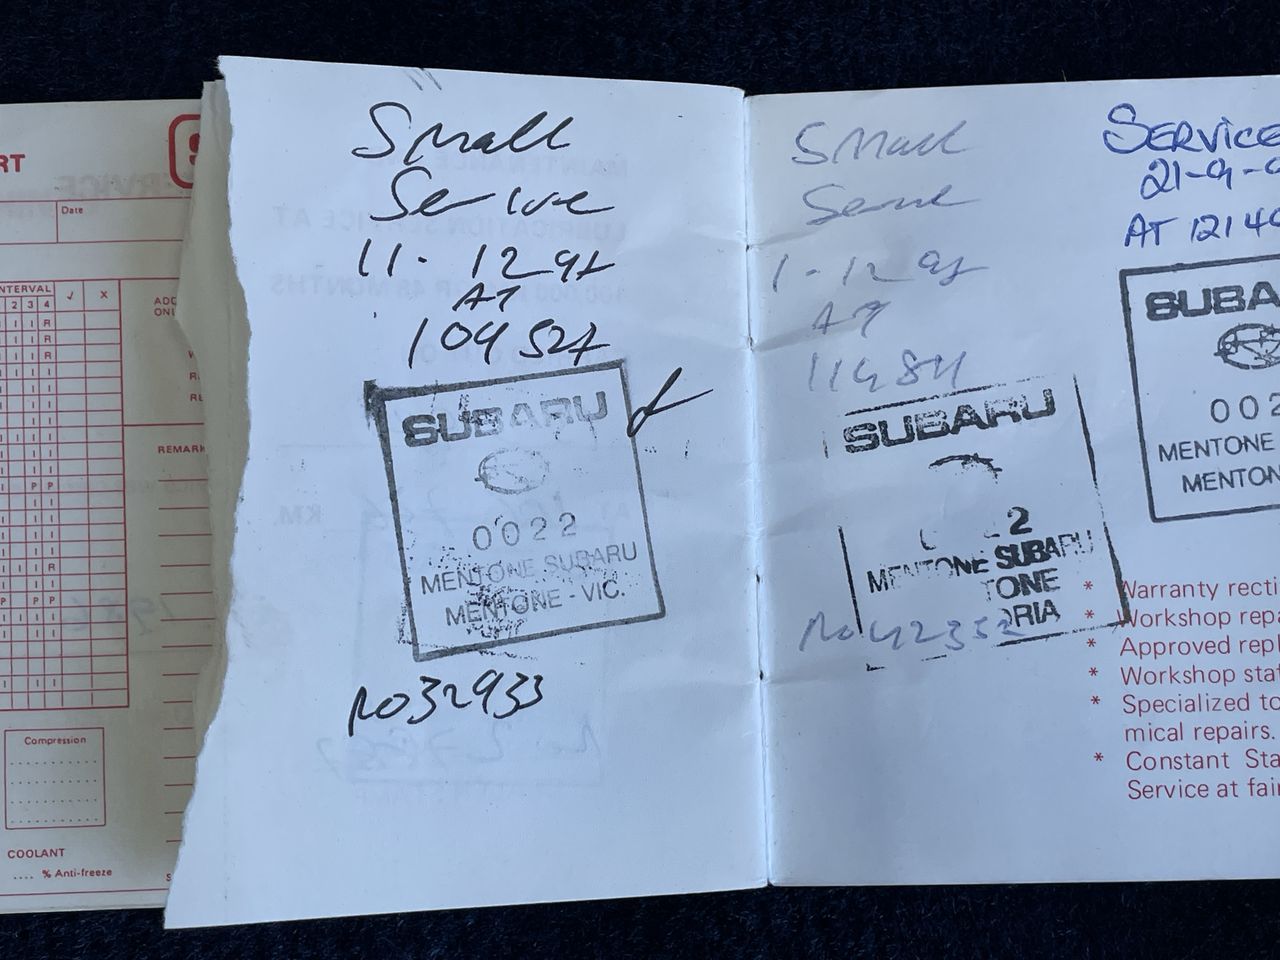 RT
Date
INTERVAL
2 3 4 ✓ X
COOLANT
.... % Anti-freeze
Compression
REMARK
Small
Service
11-12 91
AT
104 521
SUBARU
0022
MENTONE SUBARU
MENTONE - VIC.
RO32933
Small
Service
1-12 91
AT
SUBARU
2
MENTONE SUBARU
TONE
ORIA
RO42352
SERVICE
21-9-9
AT 121 40
SUBA
002
MENTONE
MENTON
* Warranty recti
* Workshop repa
* Approved repl
* Workshop stat
* Specialized to
mical repairs.
* Constant Sta
Service at fair